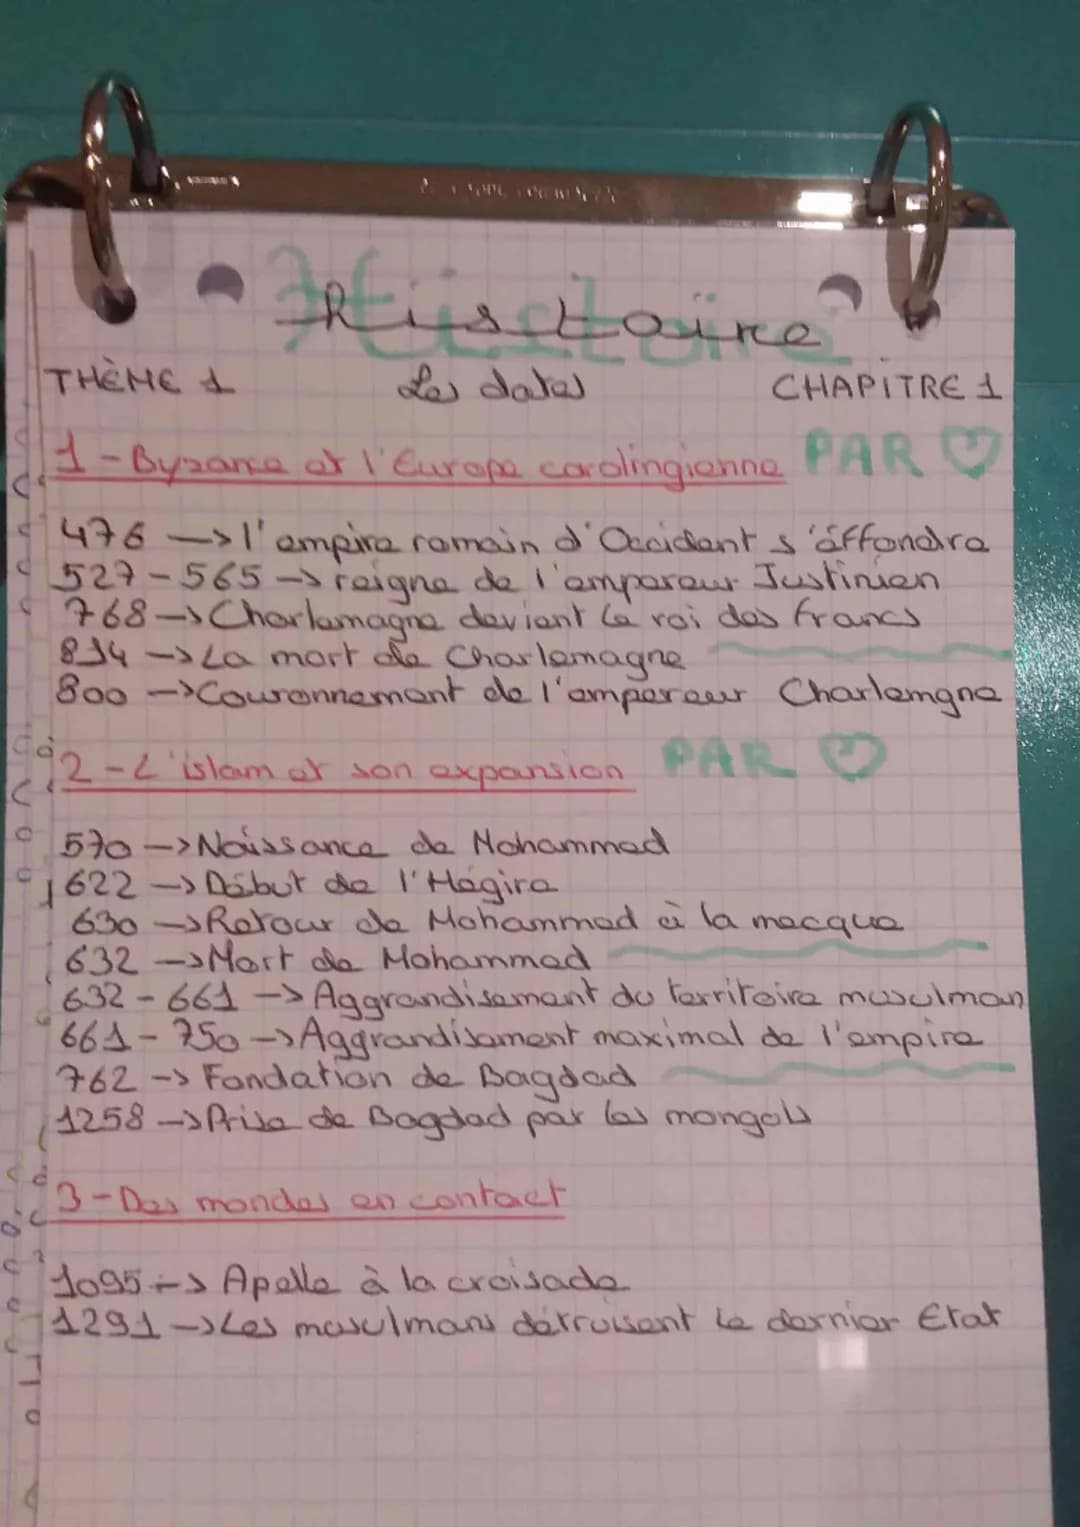 Histoire
THÈME 1 Les dates CHAPITRE 1
1 - Byzance et l'Europe carolingienne PAR ♡
476 → l'empire romain d'Occident s'éffondre
527 - 565 → reigne de l'empereur Justinien
768 → Charlemagne devient le roi des francs
814 → La mort de Charlemagne
800 → Couronnement de l'empereur Charlemgne
2 - L'islam et son expansion PAR ♡
570 → Naissance de Mohammed
622 → Début de l'Hégire
630 → Retour de Mohammed à la mecque
632 → Mort de Mohammed
632 - 661 → Aggrandisement du territoire musulman
661 - 750 → Aggrandisement maximal de l'empire
762 → Fondation de Bagdad
1258 → Prise de Bagdad par les mongols
3 - Des mondes en contact
1095 → Apelle à la croisade
1291 → Les musulmans détruisent le dernier Etat